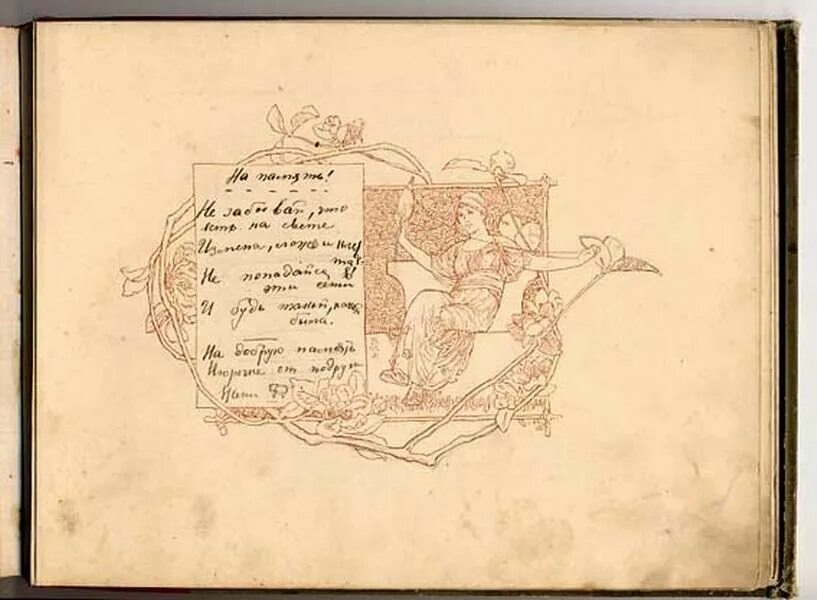 На память!
Не забывай, что
есть на свете
Измена, слож и клев
та.
Не попадайся в
эти сети
И будь такой, какой
была.
На добрую память
Нюрочке от подруги